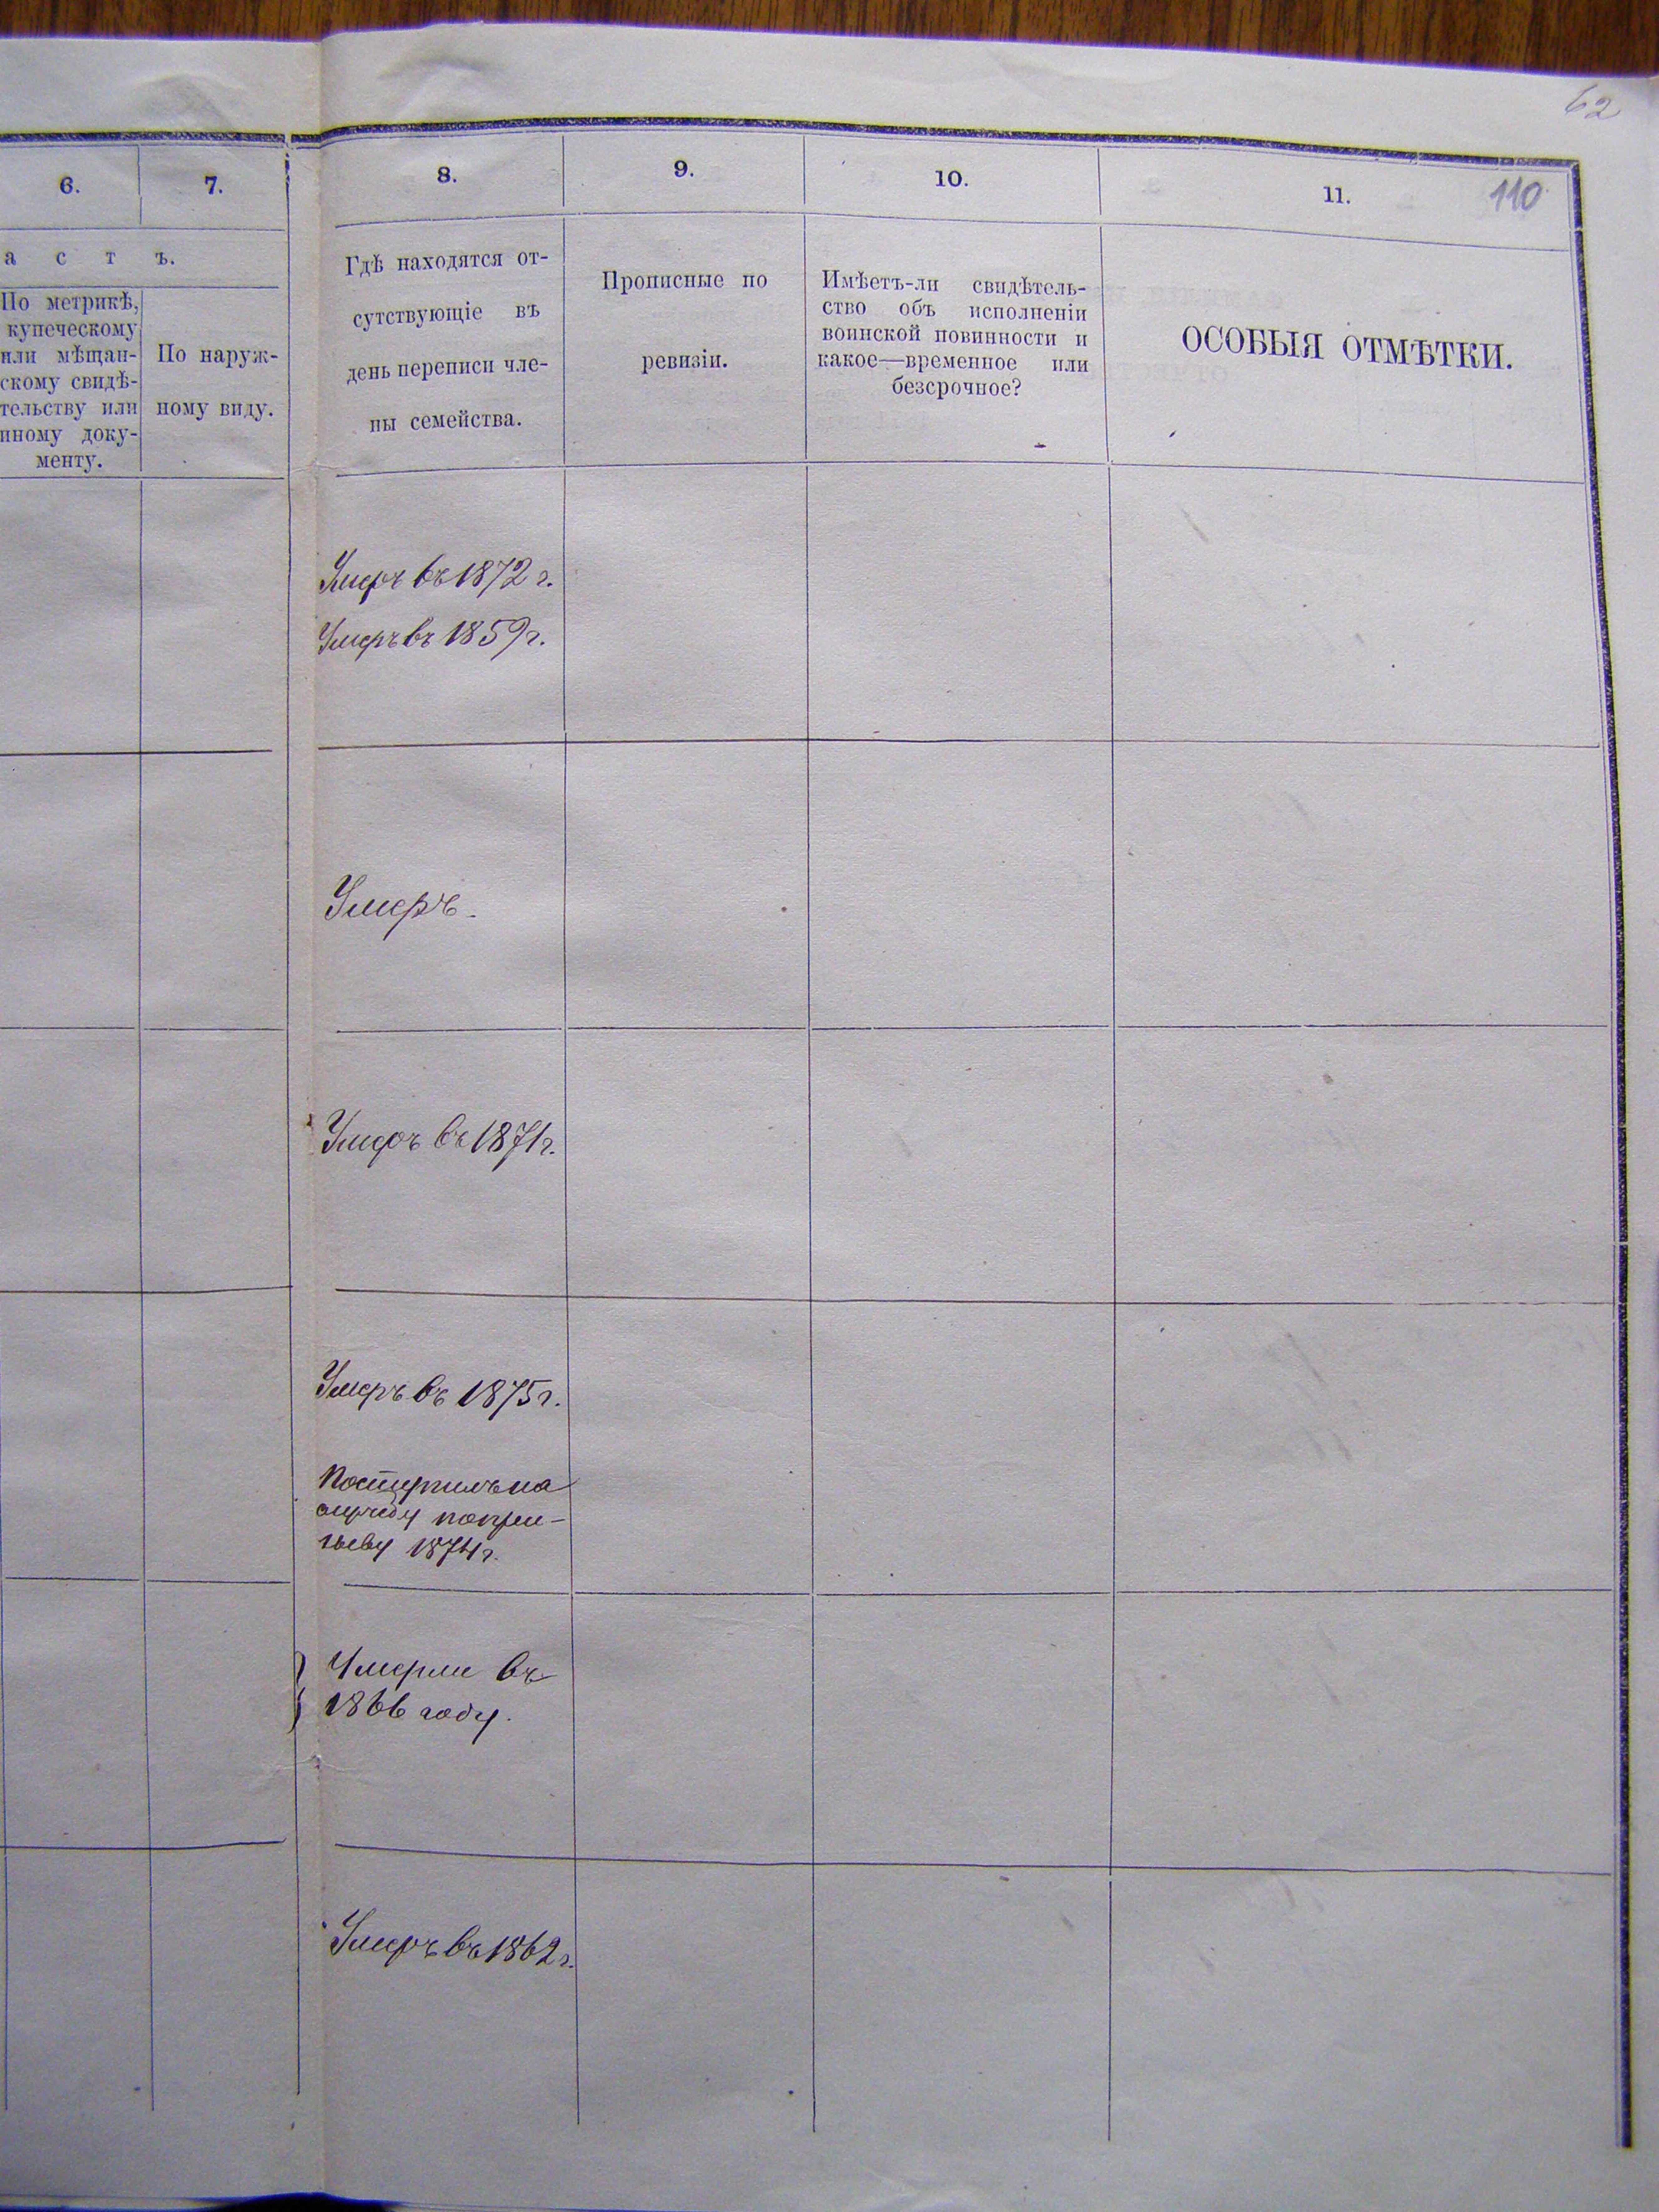 62
110
6.
7.
8.
9.
10.
11.
а с т ъ.
По метрикѣ,
купеческому
или мѣщан-
скому свидѣ-
тельству или
иному доку-
менту.
По наруж-
ному виду.
Гдѣ находятся от-
сутствующіе въ
день переписи чле-
ны семейства.
Прописные по
ревизіи.
Имѣетъ-ли свидѣтель-
ство объ исполненіи
воинской повинности и
какое—временное или
безсрочное?
ОСОБЫЯ ОТМѢТКИ.
Умеръ въ 1872 г.
Умеръ въ 1859 г.
Умеръ.
Умеръ въ 1871 г.
Умеръ въ 1875 г.
Поступилъ на
службу по при-
зыву 1874 г.
Умерли въ
1866 году.
Умеръ въ 1862 г.